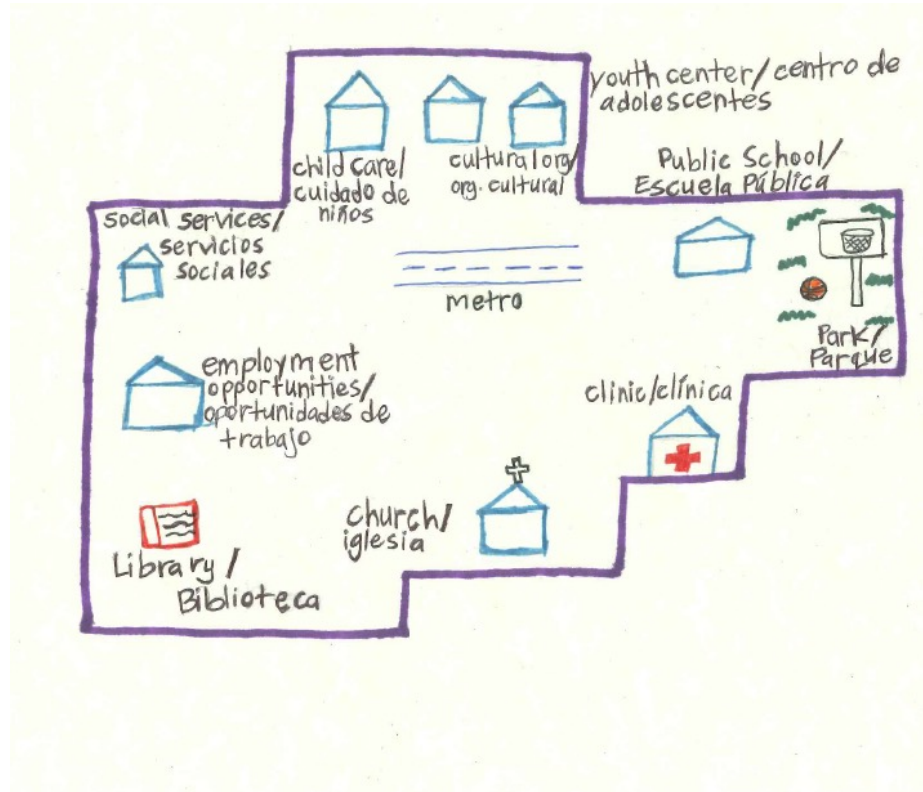 youth center/centro de
adolescentes
child care/
cuidado de
niños
cultural org/
org. cultural
Public School/
Escuela Pública
social services/
servicios
sociales
metro
Park/
Parque
employment
opportunities/
oportunidades de
trabajo
clinic/clínica
church/
iglesia
Library/
Biblioteca